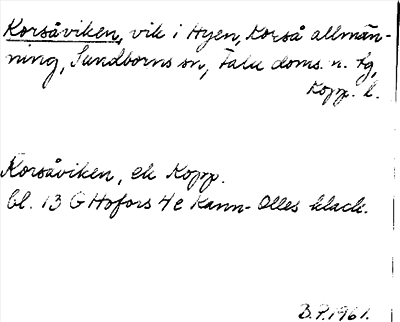 Korsåviken, vik i Hyen, Korså allmän-
ning, Sundborns sn, Falu doms. n. tg,
Kopp. l.
Korsåviken, ek Kopp.
bl. 13 G Hofors 4e Karin-Olles klack.
B.P. 1961.